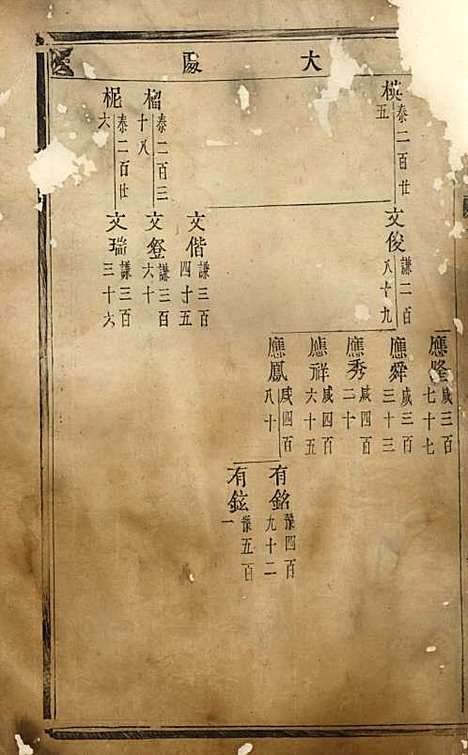 大
模 泰二百廿五
榴 泰二百三十八
柅 泰二百廿六
文俊 謙二百八十九
文偕 謙三百四十五
文登 謙三百六十
文瑞 謙三百三十六
應隆 咸三百七十七
應舜 咸三百三十三
應秀 咸四百二十
應祥 咸四百六十五
應鳳 咸四百八十
有銘 豫四百九十二
有鉉 豫五百一